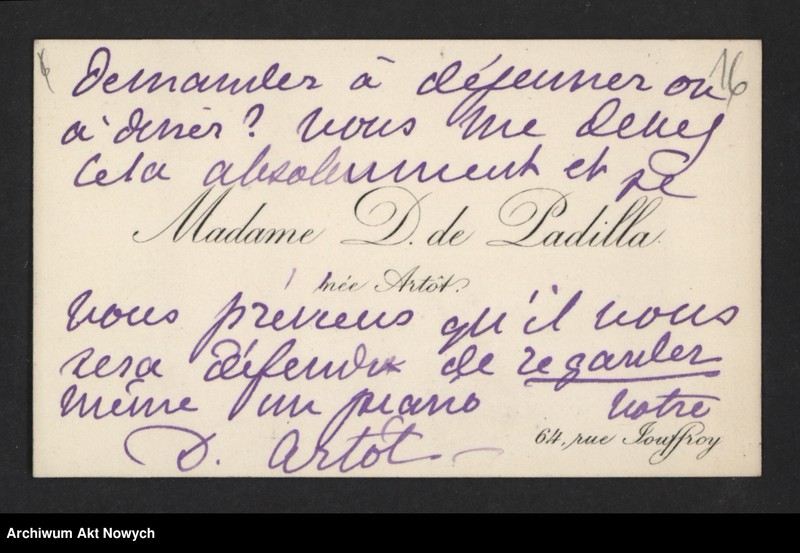 16
demander à déjeuner ou
à diner? vous me devez
cela absolument et je
Madame D. de Padilla.
née Artôt.
vous préviens qu'il vous
sera défendu de regarder
même un piano votre
D. Artôt
64, rue Jouffroy
Archiwum Akt Nowych